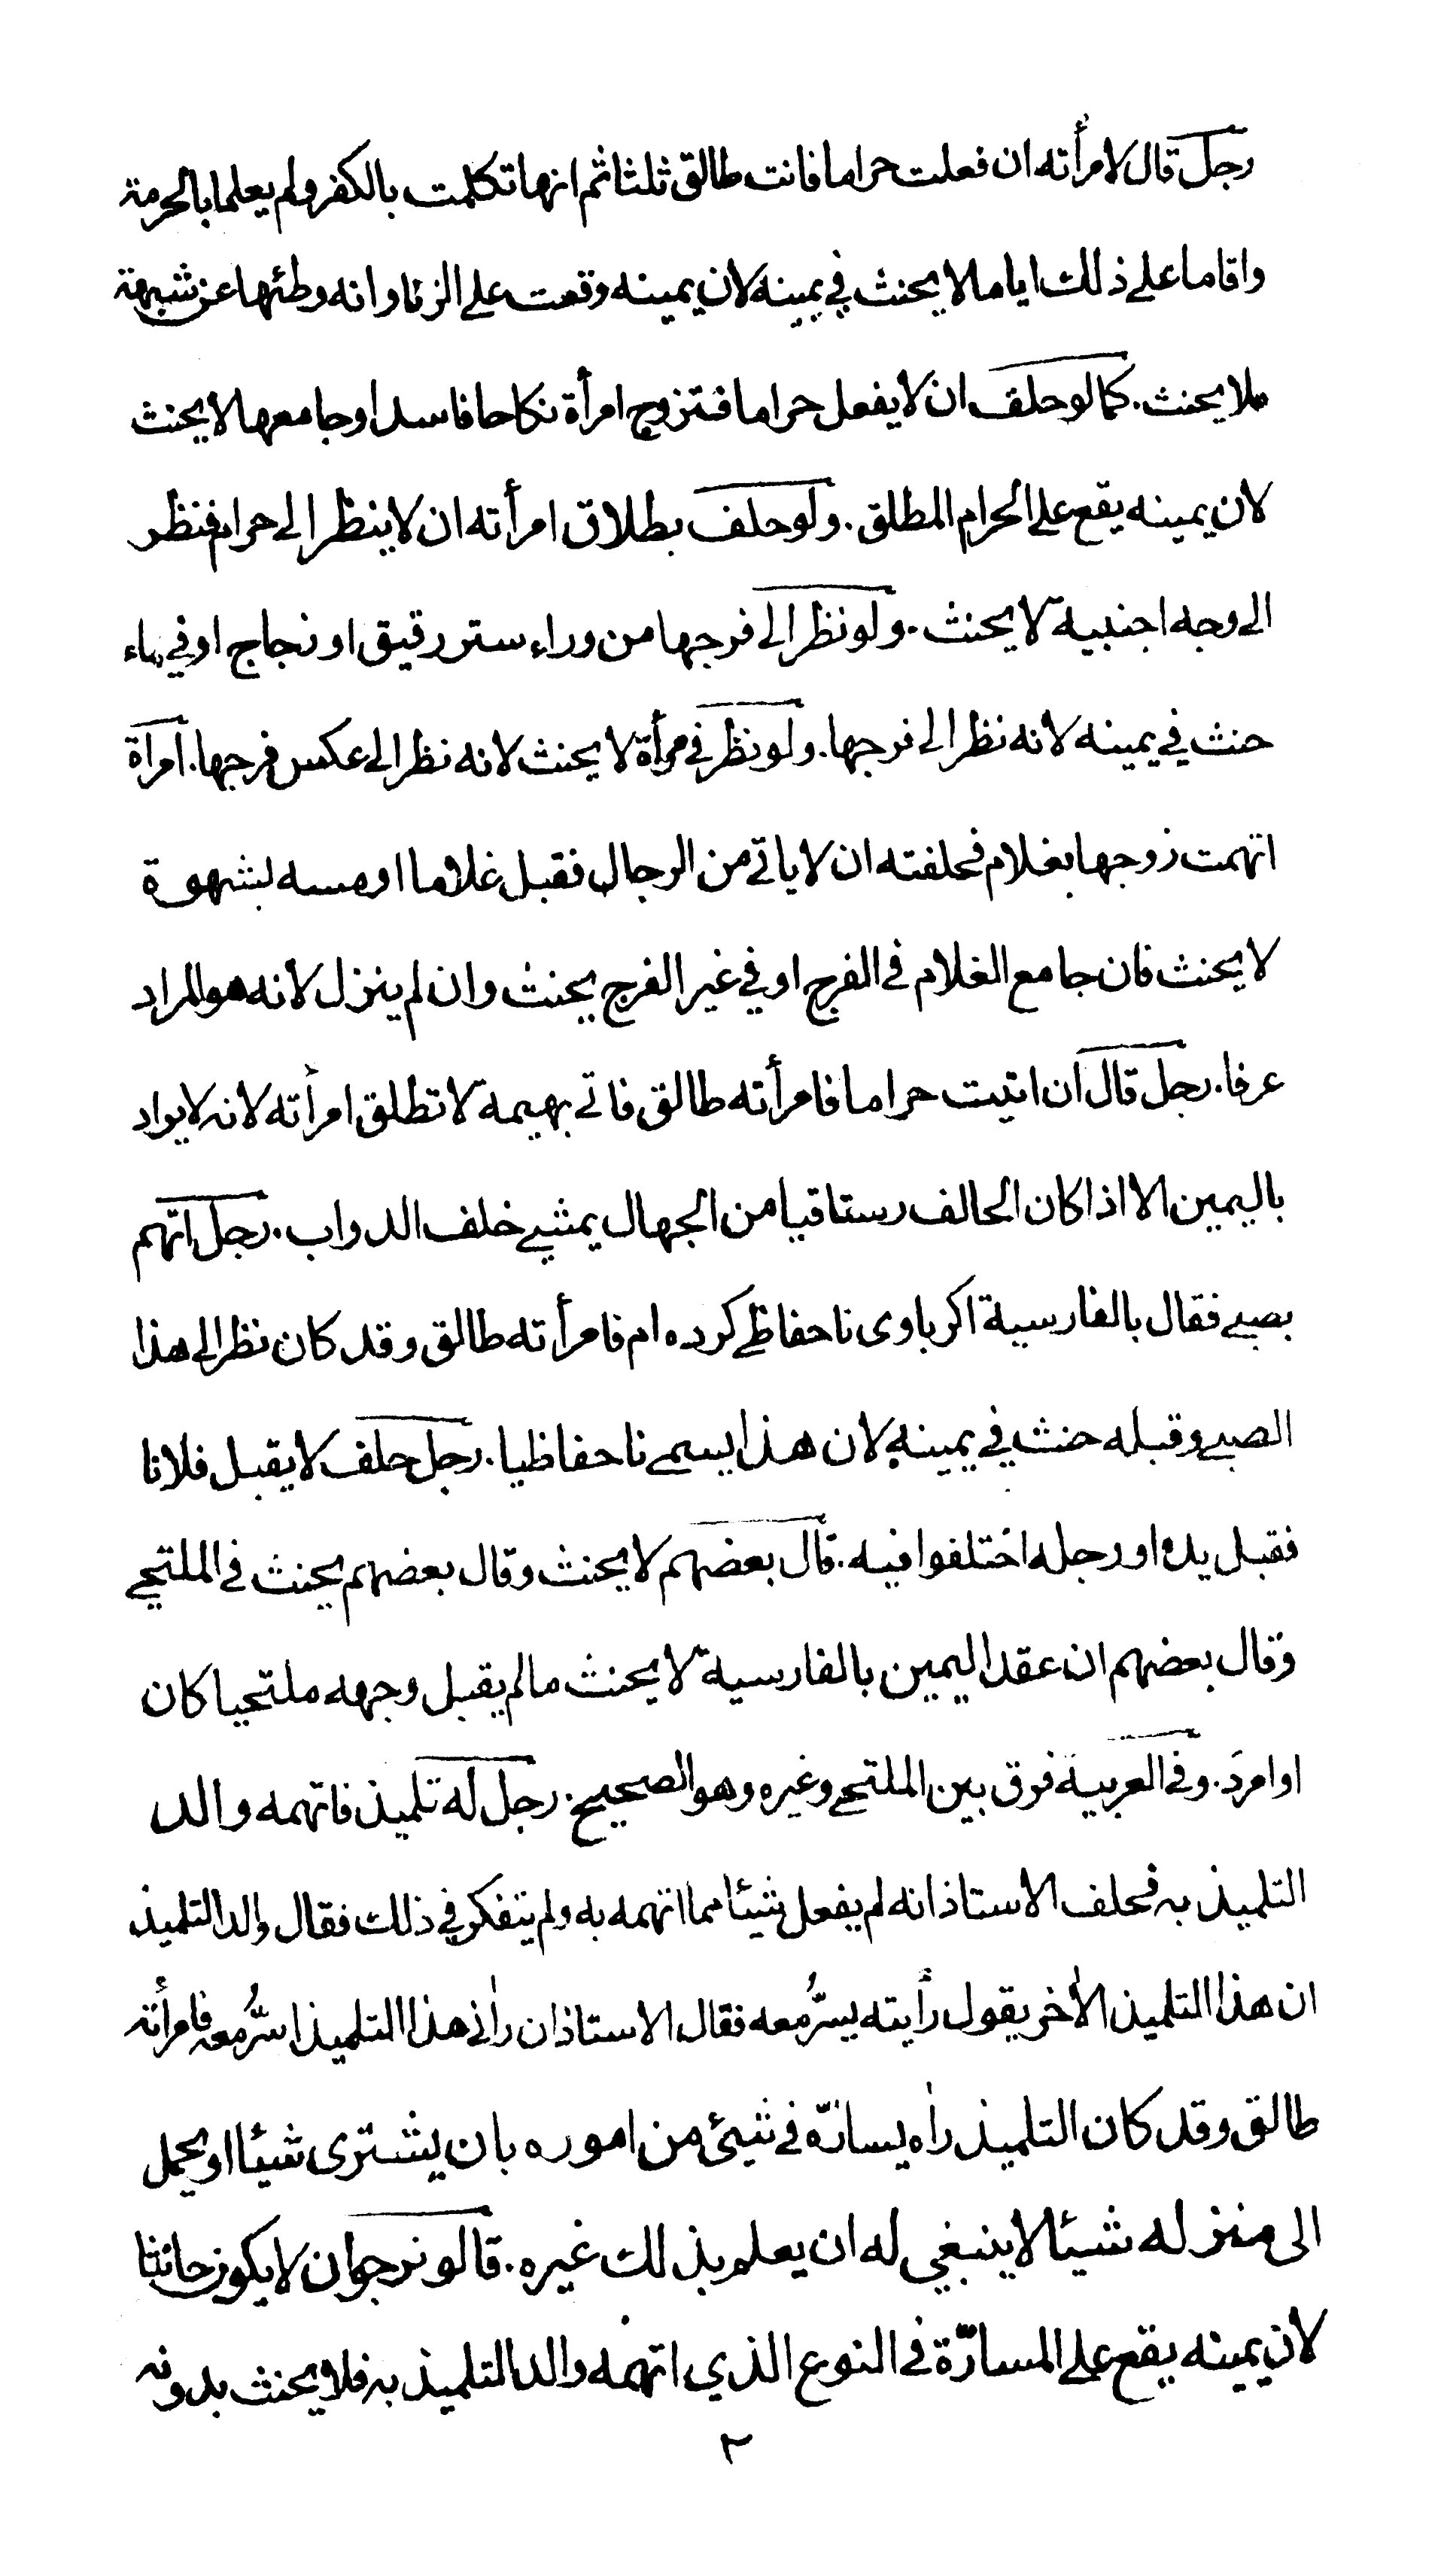 رجل قال لامرأته ان فعلت حراما فانت طالق ثلثا ثم انها تكلمت بالكفر ولم يعلما بالحرمة
واقاما على ذلك اياما لا يحنث في يمينه لان يمينه وقعت على الزنا وانه وطئها عن شبهة
فلا يحنث. كما لو حلف ان لا يفعل حراما فتزوج امرأة نكاحا فاسدا وجامعها لا يحنث
لان يمينه يقع على الحرام المطلق. ولو حلف بطلاق امرأته ان لا ينظر الى حرام فنظر
الى وجه اجنبية لا يحنث. ولو نظر الى فرجها من وراء ستر رقيق او زجاج او في ماء
حنث في يمينه لانه نظر الى فرجها. ولو نظر في مرأة لا يحنث لانه نظر الى عكس فرجها. امرأة
اتهمت زوجها بغلام فحلفته ان لا ياتي من الرجال فقبل غلاما او مسه لشهوة
لا يحنث فان جامع الغلام في الفرج او في غير الفرج يحنث وان لم ينزل لأنه هو المراد
عرفا. رجل قال ان اتيت حراما فامرأته طالق فاتى بهيمة لا تطلق امرأته لانه لا يراد
باليمين الا اذا كان الحالف رستاقيا من الجهال يمشي خلف الدواب. رجل اتهم
بصبي فقال بالفارسية اكر باوى ناحفاظي كرده ام فامرأته طالق وقد كان نظر الى هذا
الصبي وقبله حنث في يمينه لان هذا يسمى ناحفاظيا. رجل حلف لا يقبل فلانا
فقبل يده او رجله اختلفوا فيه. قال بعضهم لا يحنث وقال بعضهم يحنث في الملتحي
وقال بعضهم ان عقد اليمين بالفارسية لا يحنث مالم يقبل وجهه ملتحيا كان
او امرد. وفي العربية فرق بين الملتحي وغيره وهو الصحيح. رجل له تلميذ فاتهمه والد
التلميذ به فحلف الاستاذ انه لم يفعل شيئا مما اتهمه به ولم يتفكر في ذلك فقال والد التلميذ
ان هذا التلميذ الأخر يقول رأيته يسرُّ معه فقال الاستاذ ان رأني هذا التلميذ اسرُّ معه فامرأته
طالق وقد كان التلميذ رأه يسارّه في شيئ من اموره بان يشترى شيئا او يحمل
الى منزله شيئا لا ينبغي له ان يعلم بذلك غيره. قالو نرجوان لا يكون حانثا
لان يمينه يقع على المسارّة في النوع الذي اتهمه والد التلميذ به فلا يحنث بدونه
٢